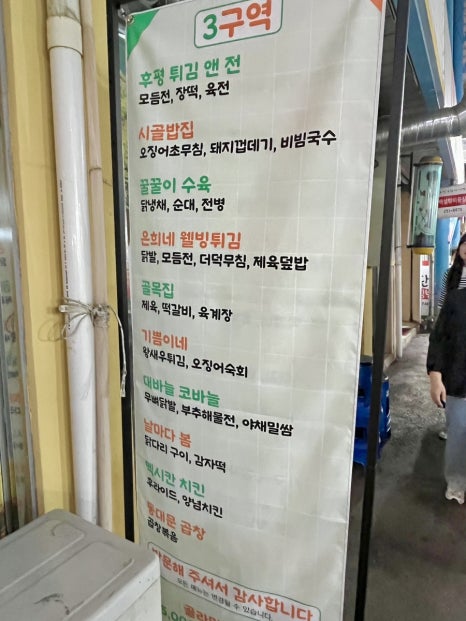 3구역
후평 튀김 앤 전
모듬전, 장떡, 육전
시골밥집
오징어초무침, 돼지껍데기, 비빔국수
꿀꿀이 수육
닭냉채, 순대, 전병
은희네 웰빙튀김
닭발, 모듬전, 더덕무침, 제육덮밥
골목집
제육, 떡갈비, 육계장
기쁨이네
왕새우튀김, 오징어숙회
대바늘 코바늘
무뼈닭발, 부추해물전, 야채밀쌈
날마다 봄
닭다리 구이, 감자떡
멕시칸 치킨
후라이드, 양념치킨
동대문 곱창
곱창볶음
방문해 주셔서 감사합니다
모든 메뉴는 변경될 수 있습니다